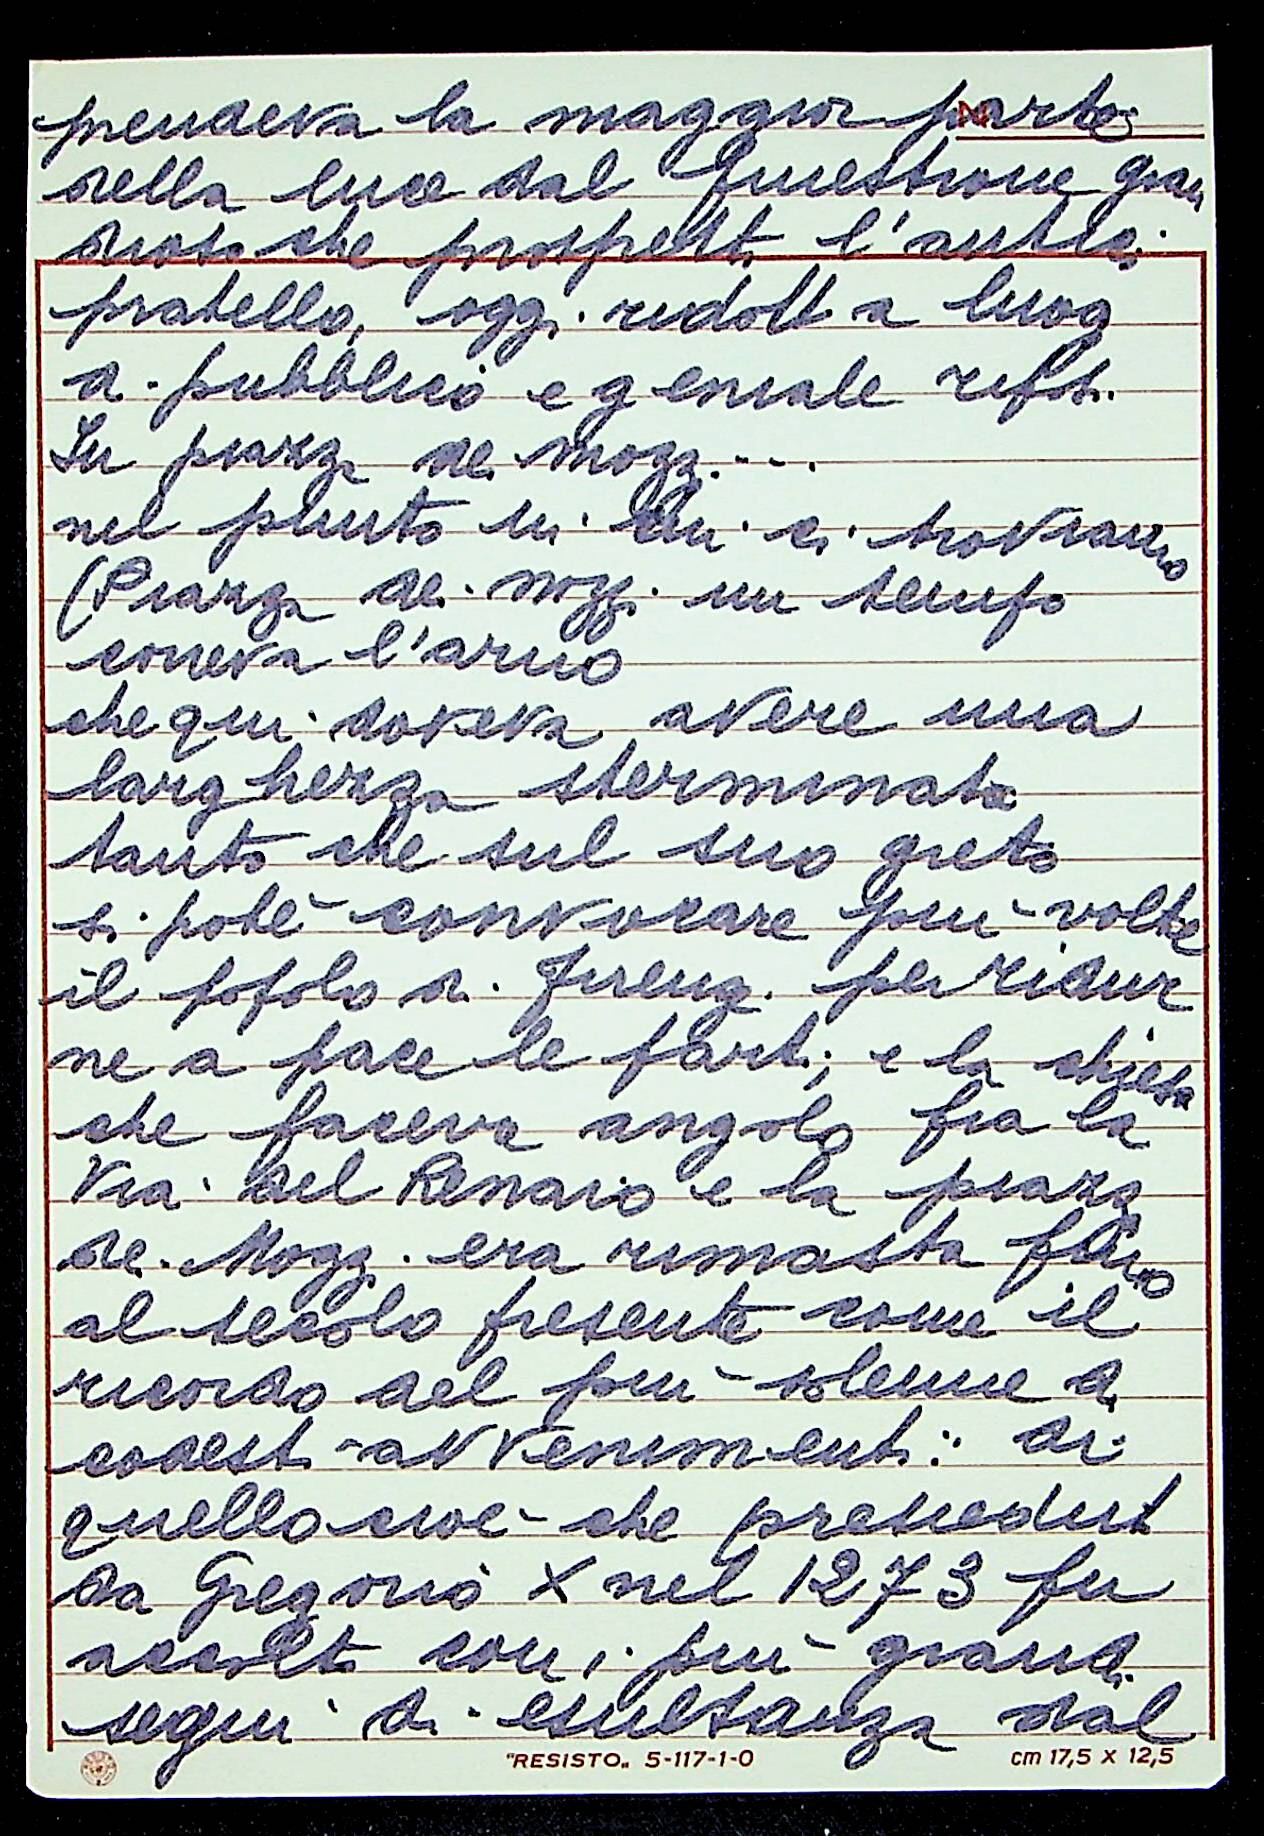 prendeva la maggior parte
della luce dal finestrone gran
dioso che prospetta l'antico
pratello, oggi ridott a luog
di pubblico e geniale rifo.
In piazza de Mozzi....
nel punto in cui ci troviamo
(Piazza de. Mozzi. un tempo
correva l'arno
che qui doveva avere una
larghezza sterminata
tanto che sul suo greto
si potè convocare più volte
il popolo di Firenz. per ridur
ne a pace le parti; e la chiesa
che faceva angolo fra la
Via del Renaio e la piazza
de. Mozzi. era rimasta fino
al secolo presente come il
ricordo del più solenne di
codesti avvenimenti: di
quello cioè che presiedut
da Gregorio X nel 1273 fu
accolt con i più grandi
segni di esultanza dal
"RESISTO„ 5-117-1-0 cm 17,5 x 12,5